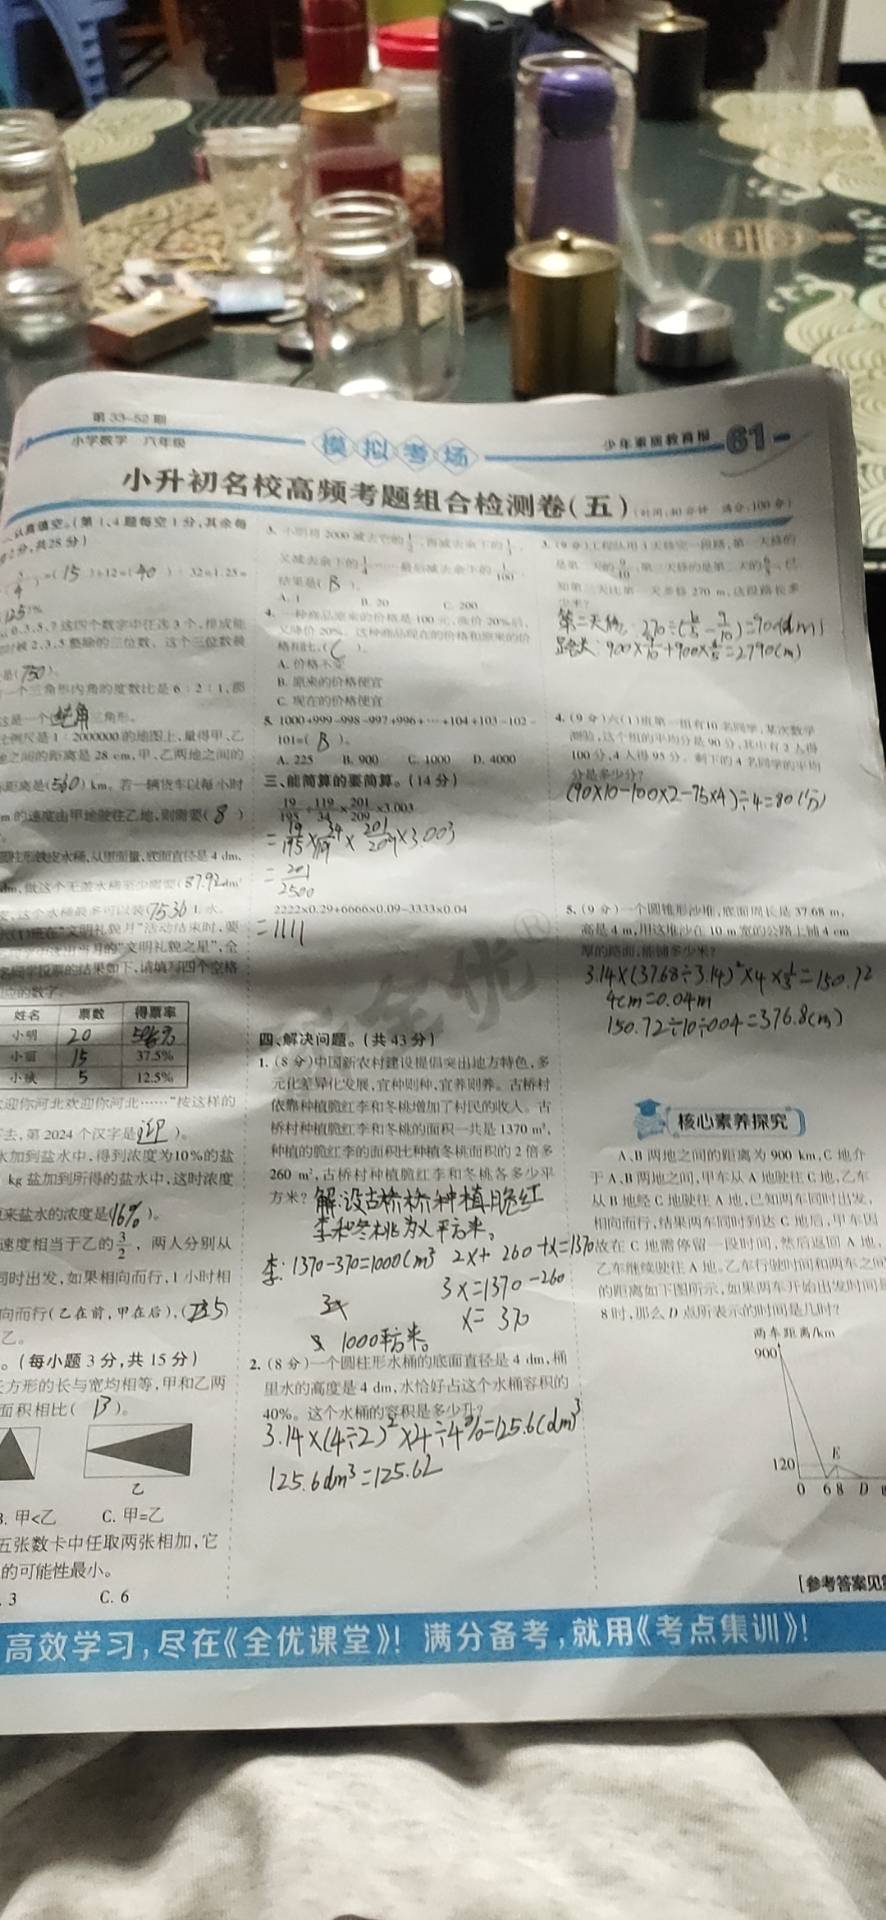 第33-52期
小学数学 六年级
模拟考场
少年素质教育报 61
小升初名校高频考题组合检测卷(五)
(时间:80分钟 满分:100分)
认真填空。(第1、4题每空1分,其余每
2分,共28分)
=(15)÷12=(40):32=1.25=
125)%
0、3、5、7这四个数字中任选3个,排成能
被2、3、5整除的三位数,这个三位数最
是(750)。
一个三角形内角的度数比是6:2:1,那
这是一个(钝角)三角形。
比例尺是1:2000000的地图上,量得甲、乙
之间的距离是28 cm,甲、乙两地之间的
距离是(560)km。若一辆货车以每小时
m的速度由甲地驶往乙地,则需要(8)
圆柱形铁皮水桶,从里面量,底面直径是4 dm,
dm,做这个无盖水桶至少需要(87.92)dm²
这个水桶最多可以装(75.36)L水。
六(1)班在“文明礼貌月”活动结束时,要
当月的“文明礼貌之星”,全
名同学投票的结果如下,请填写四个空格
应的数字。
姓名 票数 得票率
小明 20 50%
小丽 15 37.5%
小斌 5 12.5%
欢迎你河北欢迎你河北……”按这样的
下去,第2024个汉字是(迎)。
水加到盐水中,得到浓度为10%的盐
kg盐加到所得的盐水中,这时浓度
原来盐水的浓度是(16%)。
速度相当于乙的3/2,两人分别从
同时出发,如果相向而行,1小时相
向而行(乙在前,甲在后),(5)
乙。
。(每小题3分,共15分)
长方形的长与宽均相等,甲和乙两
面积相比(B)。
乙
B. 甲<乙 C. 甲=乙
五张数卡中任取两张相加,它
的可能性最小。
. 3 C. 6
3. 小明用2000减去它的1/2,再减去余下的1/3,
又减去余下的1/4……最后减去余下的1/100,
结果是(B)。
A. 1 B. 20 C. 200
4. 一种商品原来的价格是100元,涨价20%后,
又降价20%。这种商品现在的价格和原来的价
格相比,(C)。
A. 价格不变
B. 原来的价格便宜
C. 现在的价格便宜
5. 1000+999-998-997+996+…+104+103-102-
101=(B)。
A. 225 B. 900 C. 1000 D. 4000
三、能简算的要简算。(14分)
19/195÷119/34×201/209×3.003
=19/195×34/119×201/209×3.003
=201/2500
2222×0.29+6666×0.09-3333×0.04
=1111
四、解决问题。(共43分)
1. (8分)中国新农村建设提倡突出地方特色,多
元化差异化发展,宜种则种,宜养则养。古桥村
依靠种植脆红李和冬桃增加了村民的收入。古
桥村种植脆红李和冬桃的面积一共是1370 m²,
种植的脆红李的面积比种植冬桃面积的2倍多
260 m²,古桥村种植脆红李和冬桃各多少平
方米?
解:设古桥村种植脆红
李和冬桃为x平方米。
李:1370-370=1000(m³ 2x+260+x=1370
3x=1370-260
x=370
1000平方米。
2. (8分)一个圆柱形水桶的底面直径是4 dm,桶
里水的高度是4 dm,水恰好占这个水桶容积的
40%。这个水桶的容积是多少升?
3.14×(4÷2)²×4÷4%=125.6(dm)³
125.6dm³=125.6L
3. (9分)工程队用3天修完一段路,第一天修的
是第二天的9/10,第三天修的是第二天的6/5,已
知第三天比第一天多修270 m,这段路长多
少米?
第二天修:270÷(6/5-9/10)=900(m)
路长:900×9/10+900×6/5=2790(m)
4. (9分)六(1)班第一组有10名同学,某次数学
测验,这个组的平均分是90分,其中有2人得
100分,4人得95分。剩下的4名同学的平均
分是多少分?
(90×10-100×2-95×4)÷4=80(分)
5. (9分)一个圆锥形沙堆,底面周长是37.68 m,
高是4 m,用这堆沙在10 m宽的公路上铺4 cm
厚的路面,能铺多少米?
3.14×(37.68÷3.14)²×4×1/3=150.72
4cm=0.04m
150.72÷10÷0.04=376.8(m)
核心素养探究
A、B两地之间的距离为900 km,C地介
于A、B两地之间,甲车从A地驶往C地,乙车
从B地经C地驶往A地,已知两车同时出发,
相向而行,结果两车同时到达C地后,甲车因
故在C地需停留一段时间,然后返回A地,
乙车继续驶往A地。乙车行驶时间和两车之间
的距离如下图所示,如果两车开始出发时间是
8时,那么D点所表示的时间是几时?
两车距离/km
900
120
E
0 6 8 D
[参考答案见
高效学习,尽在《全优课堂》!满分备考,就用《考点集训》!